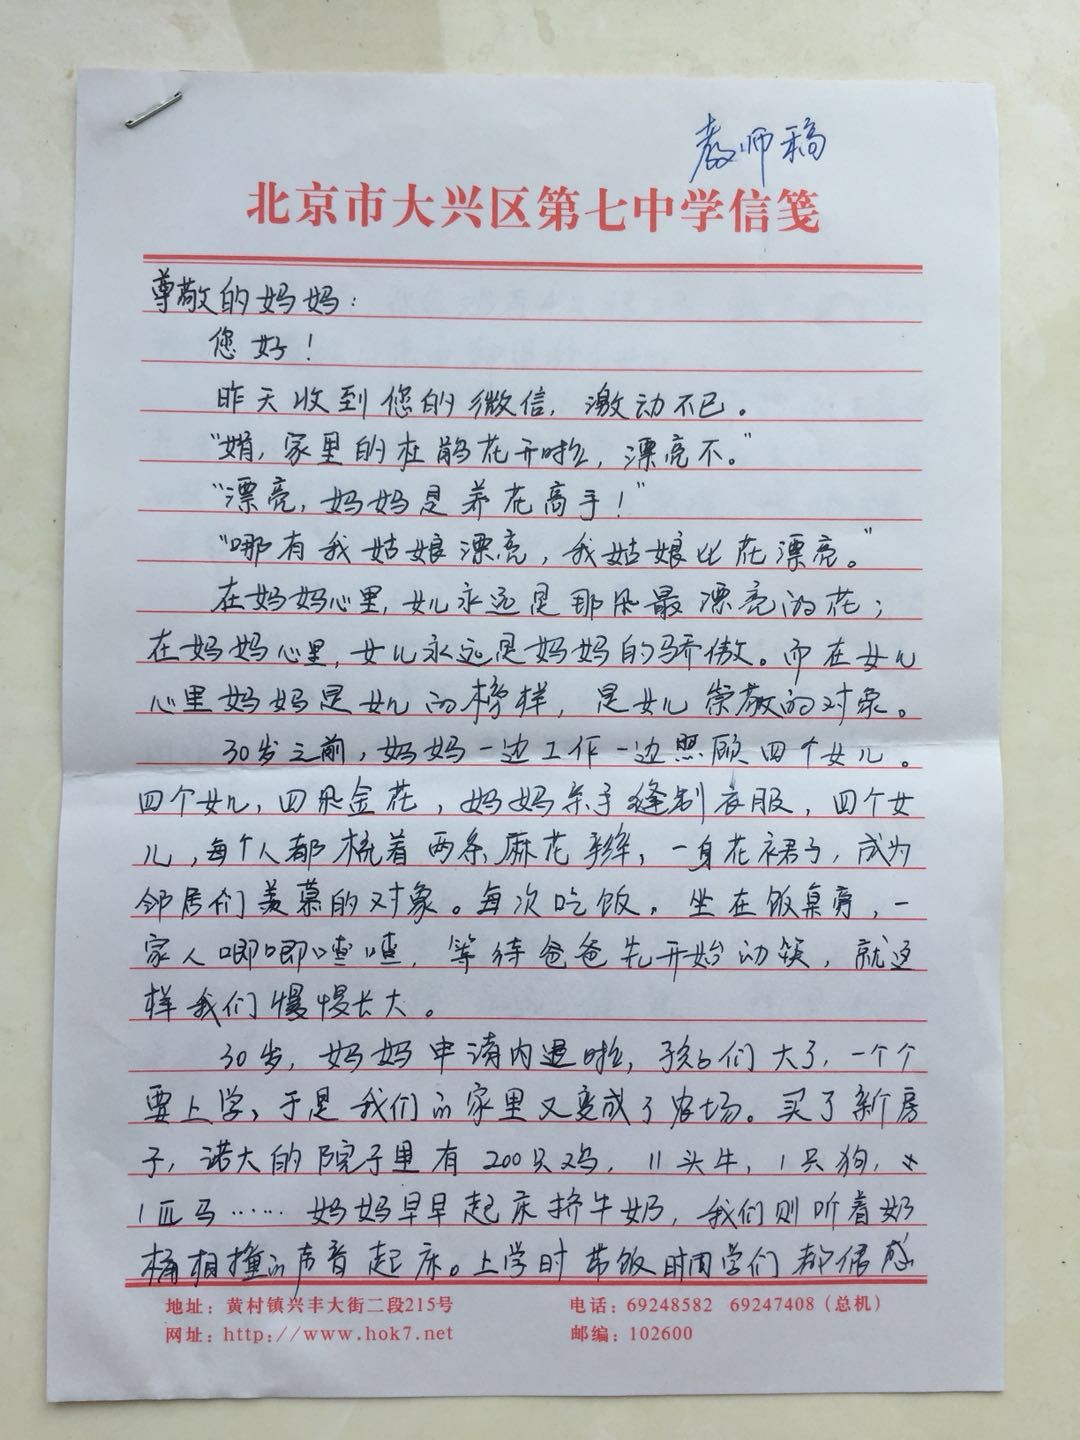 教师稿
北京市大兴区第七中学信笺
尊敬的妈妈：
您好！
昨天收到您的微信，激动不已。
“娟，家里的杜鹃花开啦，漂亮不。”
“漂亮，妈妈是养花高手！”
“哪有我姑娘漂亮，我姑娘比花漂亮。”
在妈妈心里，女儿永远是那朵最漂亮的花；
在妈妈心里，女儿永远是妈妈的骄傲。而在女儿
心里妈妈是女儿的榜样，是女儿崇敬的对象。
30岁之前，妈妈一边工作一边照顾四个女儿。
四个女儿，四朵金花，妈妈亲手缝制衣服，四个女
儿，每个人都梳着两条麻花辫，一身花裙子，成为
邻居们羡慕的对象。每次吃饭，坐在饭桌旁，一
家人唧唧喳喳，等待爸爸先开始动筷，就这
样我们慢慢长大。
30岁，妈妈申请内退啦，孩子们大了，一个个
要上学，于是我们的家里又变成了农场。买了新房
子，诺大的院子里有200只鸡，11头牛，1只狗，
1匹马……妈妈早早起床挤牛奶，我们则听着奶
桶相撞的声音起床。上学时带饭时同学们都倍感
地址：黄村镇兴丰大街二段215号 电话：69248582 69247408（总机）
网址：http://www.hok7.net 邮编：102600